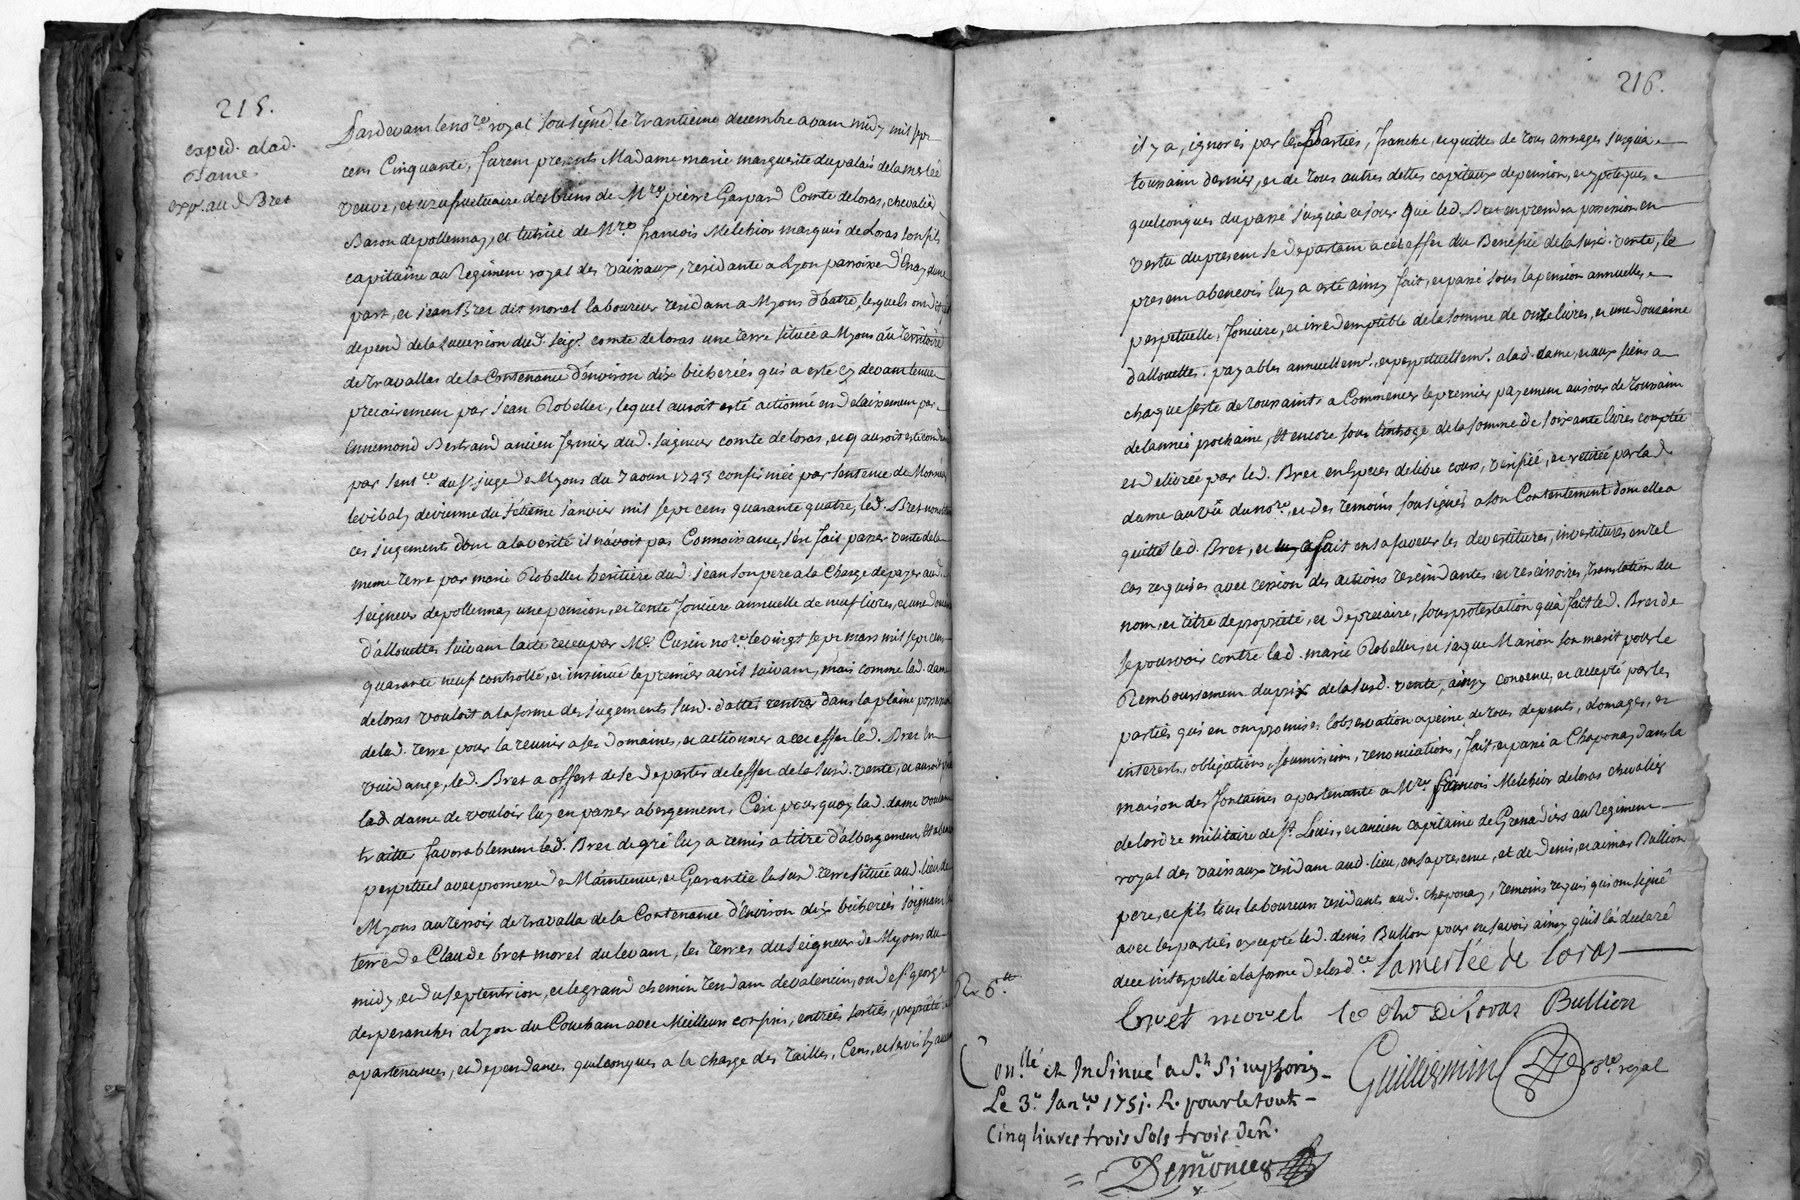 215.
exped. a lad.
Dame.
exp. au d Bret
Pardevant le no.re royal soussigné le trantieme decembre avant midy mil sept
cens Cinquante, furent presents Madame marie marguerite dupalais de la merlée
veuve, et uzufructuaire des biens de M.re pierre Gaspard Comte deloras, chevalier
Baron de pollennay, et tutrice de M.re francois Melchior marquis de Loras son fils
capitaine au Regiment royal des vaissaux, residante a Lyon parroisse d'Enay d'une
part, et jean Bret dit morel laboureur residant a Myons d'autre, lesquels ont dit que
depend de la succession dud. seig.r comte deloras une terre située a Myons au Territoire
de travallas de la Contenance d'environ dix bicherées qui a esté cy devant tenue
precairement par jean Robellet, lequel auroit esté actionné en delaissement par
Ennemond Bertrand ancien fermier dud. seigneur comte deloras, et y auroit esté condamné
par sent.ce du s.r juge de Myons du 7 aout 1743 confirmée par sentence de Monsieur
levibaly devienne du sétième janvier mil sept cens quarante quatre, led. Bret nonobstant
ces jugements dont a la verité il n'avoit pas Connoissance, s'en fait passer vente de la
meme terre par marie Robellet heritiere dud. jean son pere a la Charge de payer aud.
seigneur de pollennay une pension, et rente fonciere annuelle de neuf livres, et une douzaine
d'allouettes suivant l'acte receu par M.e Cusin no.re le vingt sept mars mil sept cens
quarante neuf controllé, et insinué le premier avril suivant, mais comme lad. dame
deloras vouloit a la forme des jugements susd. dattés rentrer dans la plaine possession
de lad. terre pour la reunir a ses domaines, et actionner a cet effet led. Bret en
vuidange, led. Bret a offert de se departir de l'effet de la susd. vente, et auroit prié
lad. dame de vouloir luy en passer abergement, C'est pourquoy lad. dame voulant
traitter favorablement led. Bret de gré luy a remis a titre d'albergement et abenevis
perpetuel avec promesse de Maintenue, et Garantie la susd. terre située aud. lieu de
Myons au terroir de travalla de la Contenance d'environ dix bicherées joignant la
terre de Claude bret morel du levant, les terres du seigneur de Myons du
midy, et du septentrion, et le grand chemin tendant de valencin, ou de s.t george
desperanches a lyon du Couchant avec Meilleurs confins, entrées sorties, proprietés
apartenances, et dependances quelconques a la charge des tailles, Cens, et servis sy aucun
216.
il y a, ignorés par les parties, franche, et quitte de tous arrerages jusqu'a
toussaint dernier, et de tous autres dettes capitaux de pension, et ypoteques
quelconques du passé jusqu'a ce jour que led. Bret en prendra possession en
vertu du present se departant a cet effet du Benefice de la susd. vente, le
present abenevis luy a esté ainsy fait, et passé sous la pension annuelle
perpetuelle, fonciere, et irredemptible de la somme de onze livres, et une douzaine
d'allouettes payables annuellem.t et perpetuellem.t a lad. dame, et aux siens a
chaque feste de toussaints a Commencer le premier payement au jour de toussaint
de l'année prochaine, et encore sous l'introge de la somme de soixante livres comptée
et delivrée par led. Bret en Especes de libre cours, verifiée, et retirée par lad.
dame au vû du no.re, et des temoins soussignés a son Contentement dont elle a
quitté led. Bret, et luy a fait en sa faveur les devestitures, investitures en tel
cas requises avec cession des actions rescindantes et rescisoires translation du
nom, et titre de propriété, et de precaire, sous protestation qu'a fait led. Bret de
se pourvoir contre lad. marie Robellet, et jaque Marion son marit pour le
Remboursement du prix de la susd. vente, ainsy convenu, et accepté par les
parties qui en ont promis l'observation a peine de tous depents, domages, et
interests, obligations, soumissions, renonciations, fait, et passé a Chaponay dans la
maison des fontaines apartenante a M.re francois Melchior deloras chevalier
de l'ordre militaire de s.t Louis, et ancien capitaine de Grenadiers au Regiment
royal des vaissaux residant aud. lieu, en sa presence, et de denis, et aimar Bullion
pere, et fils tous laboureurs residants aud. chaponay, temoins requis qui ont signé
avec les parties excepté led. denis Bullion pour ne savoir ainsy qu'il l'a declaré
de ce interpellé a la forme de l'ord.ce
la merlée de loras
R. 6.tt
bret morel le Che De Loras Bullion
Guilliermin no.re royal
Con.llé et Insinué a S.t Simphorin
Le 3.e Jan.er 1751. R. pour le tout
Cinq livres trois Sols trois den.
Demonceg